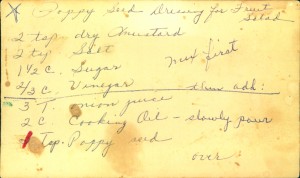 Poppy Seed Dressing for Fruit
Salad
2 tsp dry Mustard
2 tsp Salt
1½ c. Sugar mix first
2/3 c. Vinegar then add:
3 T. onion juice
2 c. Cooking Oil - slowly pour
1 Tsp. Poppy seed
over